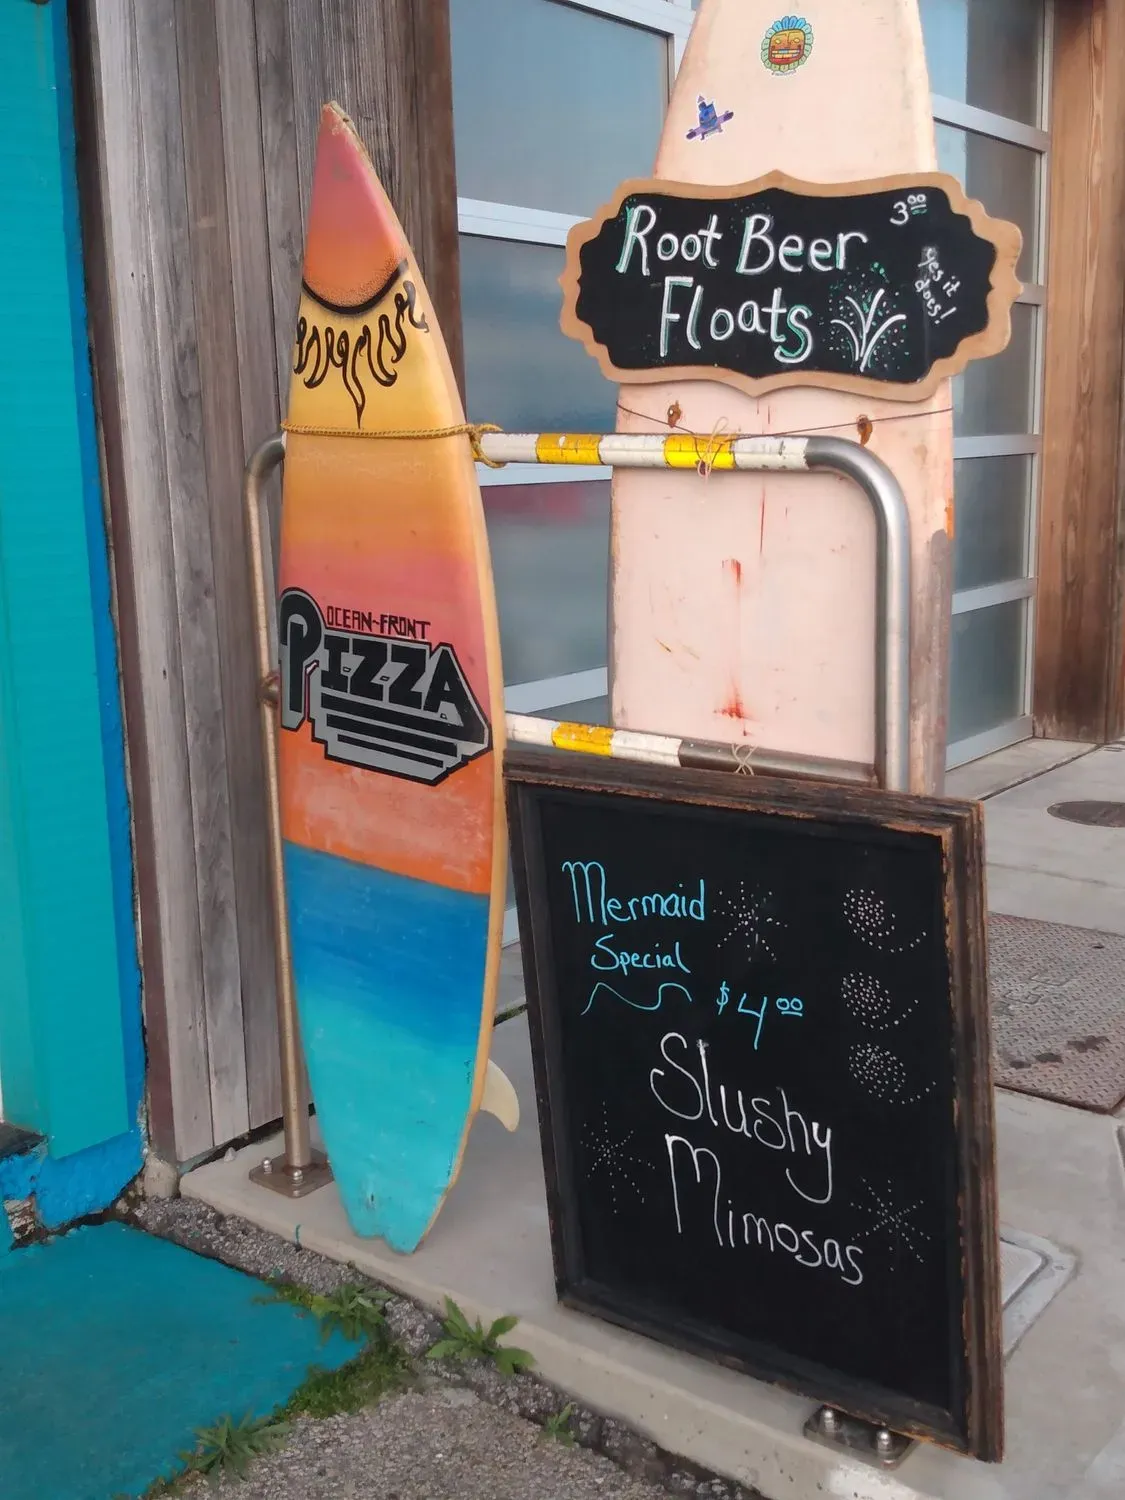 Root Beer
Floats
3.00
yes it
does!
OCEAN-FRONT
PIZZA
Mermaid
Special
$4.00
Slushy
Mimosas